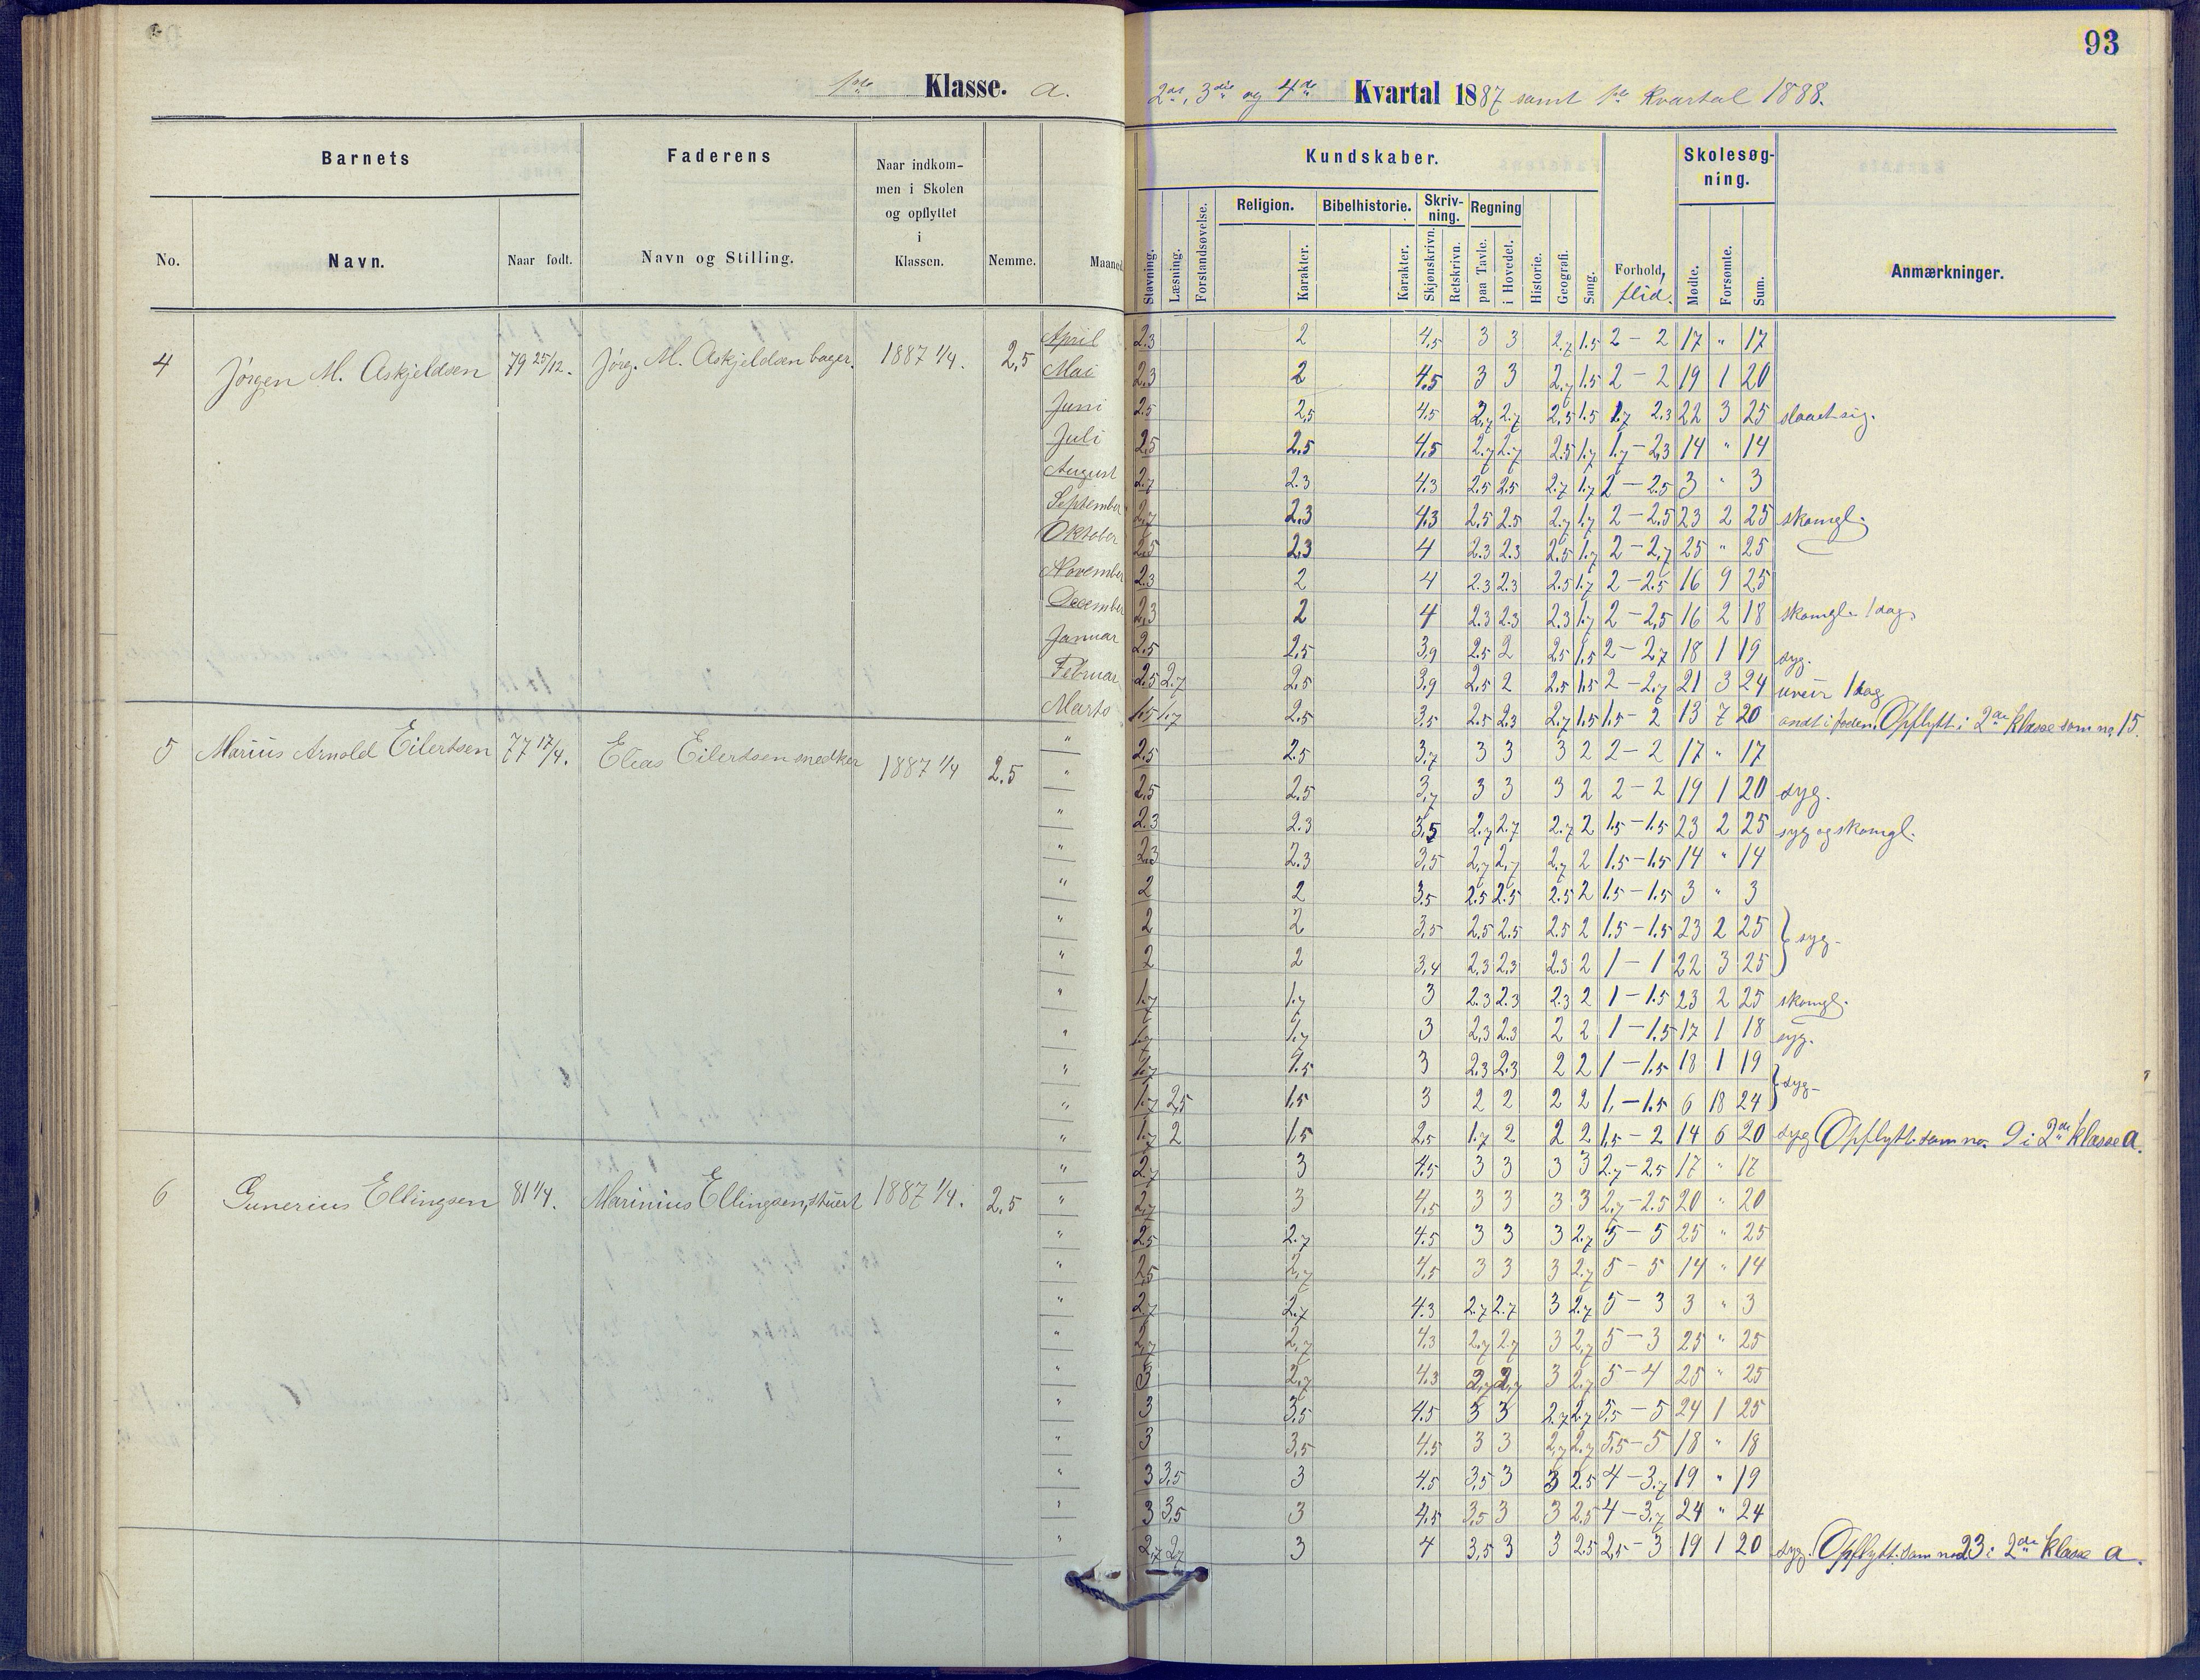 93
1ste Klasse. a. 2det, 3die og 4de Kvartal 1887 samt 1ste Kvartal 1888.
Barnets Faderens Naar indkom- men i Skolen og opflyttet i Klassen. Nemme. Maaned Kundskaber. Skolesøg- ning.
No. Navn. Naar født. Navn og Stilling. Stavning. Læsning. Forstandsøvelse. Religion. Karakter. Bibelhistorie. Karakter. Skriv- ning. Skjønskrivn. Retskrivn. Regning paa Tavle. i Hovedet. Historie. Geografi. Sang. Forhold, flid. Mødte. Forsømte. Sum. Anmærkninger.
4 Jørgen M. Askjeldsen 79 25/12. Jørg. M. Askjeldsen bager. 1887 1/4. 2,5
April 2.3 2 4,5 3 3 2,7 1.5 2 - 2 17 " 17
Mai 2.3 2 4.5 3 3 2,7 1.5 2 - 2 19 1 20
Juni 2.5 2,5 4.5 2,7 2.7 2,5 1.5 1.7 2.3 22 3 25 slaaet sig.
Juli 2.5 2.5 4,5 2.7 2.7 2.5 1.7 1.7 - 2,3 14 " 14
August 2.7 2.3 4.3 2.5 2.5 2.7 1.7 2 - 2.5 3 " 3
September 2,7 2.3 4.3 2,5 2.5 2.7 1.7 2 - 2.5 23 2 25 skomgl.
Oktober 2.5 2,3 4 2.3 2.3 2.5 1.7 2 - 2,7 25 " 25
November 2.3 2 4 2.3 2.3 2.5 1.7 2 - 2.5 16 9 25
December 2,3 2 4 2.3 2.3 2.3 1.7 2 - 2,5 16 2 18 skomgl. 1 dag.
Januar 2.5 2,5 3,9 2.5 2 2.5 1,5 2 - 2,7 18 1 19 syg.
Februar 2.5 2.7 2,5 3,9 2,5 2 2.5 1.5 2 - 2,7 21 3 24 uveir 1 dag
Marts 1.5 1.7 2.5 3,5 2.5 2.3 2.7 1.5 1.5 - 2 13 7 20 ondt i foden. Opflytt. i 2den Klasse som no. 15.
5 Marius Arnold Eilertsen 77 17/4. Elias Eilertsen snedker 1887 1/4 2.5
" 2.5 2.5 3,7 3 3 3 2 2 - 2 17 " 17
" 2,5 2.5 3,7 3 3 3 2 2 - 2 19 1 20 syg.
" 2.3 2.3 3,5 2,7 2.7 2.7 2 1.5 - 1.5 23 2 25 syg og skomgl.
" 2.3 2.3 3,5 2,7 2,7 2,7 2 1.5 - 1.5 14 " 14
" 2 2 3,5 2.5 2.5 2.5 2 1.5 - 1.5 3 " 3
" 2 2 3,5 2.5 2.5 2.5 2 1.5 - 1.5 23 2 25 } syg.
" 2 2 3,4 2,3 2,3 2.3 2 1 - 1 22 3 25
" 1.7 1.7 3 2.3 2.3 2.3 2 1 - 1.5 23 2 25 skomgl.
" 1.7 1.7 3 2,3 2.3 2 2 1 - 1.5 17 1 18 syg.
" 1.7 1.5 3 2.3 2.3 2 2 1 - 1.5 18 1 19 } syg.
" 1.7 2,5 1,5 3 2 2 2 2 1, - 1.5 6 18 24
" 1.7 2 1.5 2,5 1.7 2 2 2 1,5 - 2 14 6 20 syg Opflytt. som no. 9 i 2den Klasse a.
6 Gunerius Ellingsen 81 1/4. Marinius Ellingsen, stuert 1887 1/4. 2,5
" 2.7 3 4.5 3 3 3 3 2.7 - 2.5 17 " 17
" 2,7 3 4,5 3 3 3 3 2.7 - 2.5 20 " 20
" 2.5 2.7 4.5 3 3 3 2.7 5 - 5 25 " 25
" 2,5 2,7 4,5 3 3 3 2.7 5 - 5 14 " 14
" 2.7 2.7 4.3 2.7 2.7 3 2.7 5 - 3 3 " 3
" 2,7 2,7 4.3 2.7 2.7 3 2,7 5 - 3 25 " 25
" 3 2,7 4.3 2,7 2,7 3 2.7 5 - 4 25 " 25
" 3 3,5 4.5 3 3 2.7 2.7 5,5 - 5 24 1 25
" 3 3,5 4.5 3 3 2,7 2.7 5,5 - 5 18 " 18
" 3 3,5 3 4.5 3,5 3 3 2.5 4 - 3.7 19 " 19
" 3 3,5 3 4.5 3,5 3 3 2.5 4 - 3,7 24 " 24
" 2,7 2,7 3 4 3,5 3 3 2.5 2,5 - 3 19 1 20 syg. Opflytt. som no 23 i 2den Klasse a.